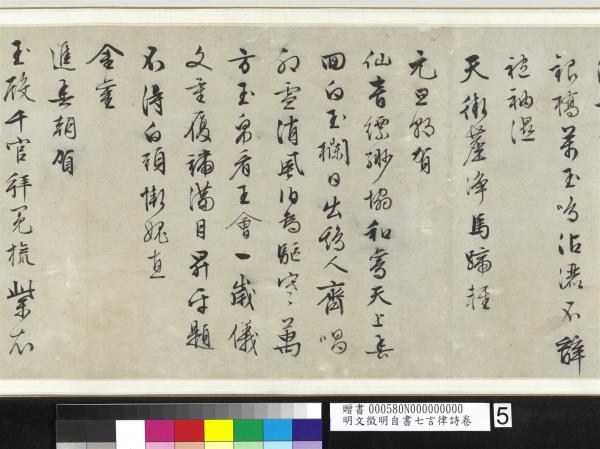 銀橋萬玉鳴沾濡不辭
袍袖濕
天街塵淨馬蹄輕
元旦朝賀
仙音縹緲協和鸞天上春
回白玉欄日出鷄人齊唱
雪消風伯為驅寒萬
方玉帛看王會一歲儀
文重履端滿目昇平題
不得白頭慚愧直
金鑾
進春朝賀
玉殿千官拜冕旒紫衣
贈書 000580N000000000
明文徵明自書七言律詩卷
5